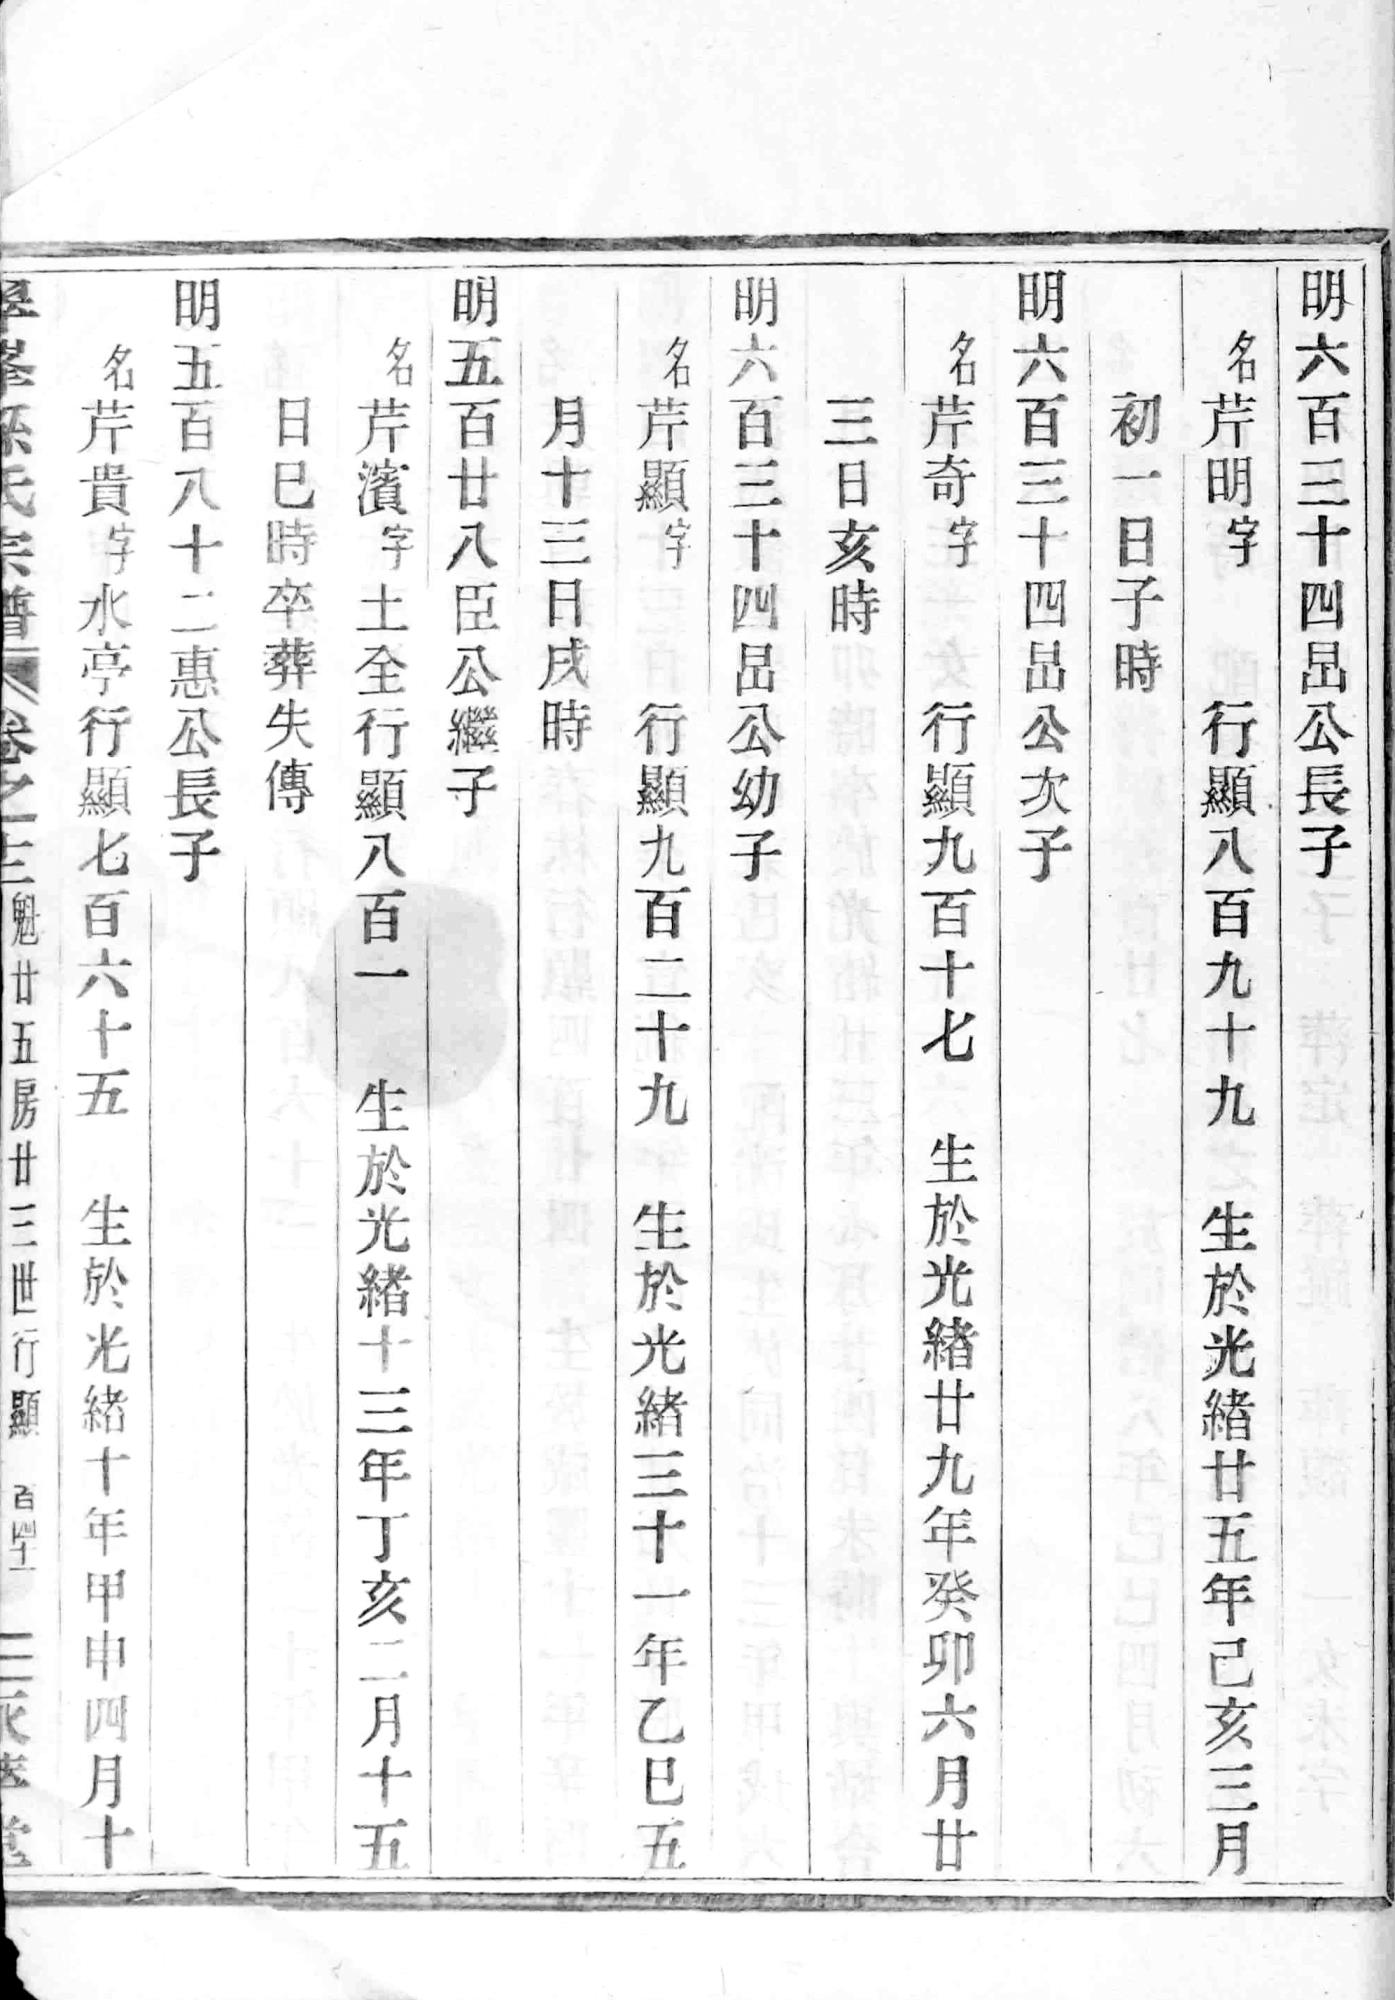 明六百三十四昷公長子
名芹明字　行顯八百九十九　生於光緒廿五年己亥三月
初一日子時
明六百三十四昷公次子
名芹奇字　行顯九百十七　生於光緒廿九年癸卯六月廿
三日亥時
明六百三十四昷公幼子
名芹顯字　行顯九百二十九　生於光緒三十一年乙巳五
月十三日戌時
明五百廿八臣公繼子
名芹濱字土全行顯八百一　生於光緒十三年丁亥二月十五
日巳時卒葬失傳
明五百八十二惠公長子
名芹貴字水亭行顯七百六十五　生於光緒十年甲申四月十
孫氏宗譜　卷之十三　魁廿五房廿三世行顯　百四十一